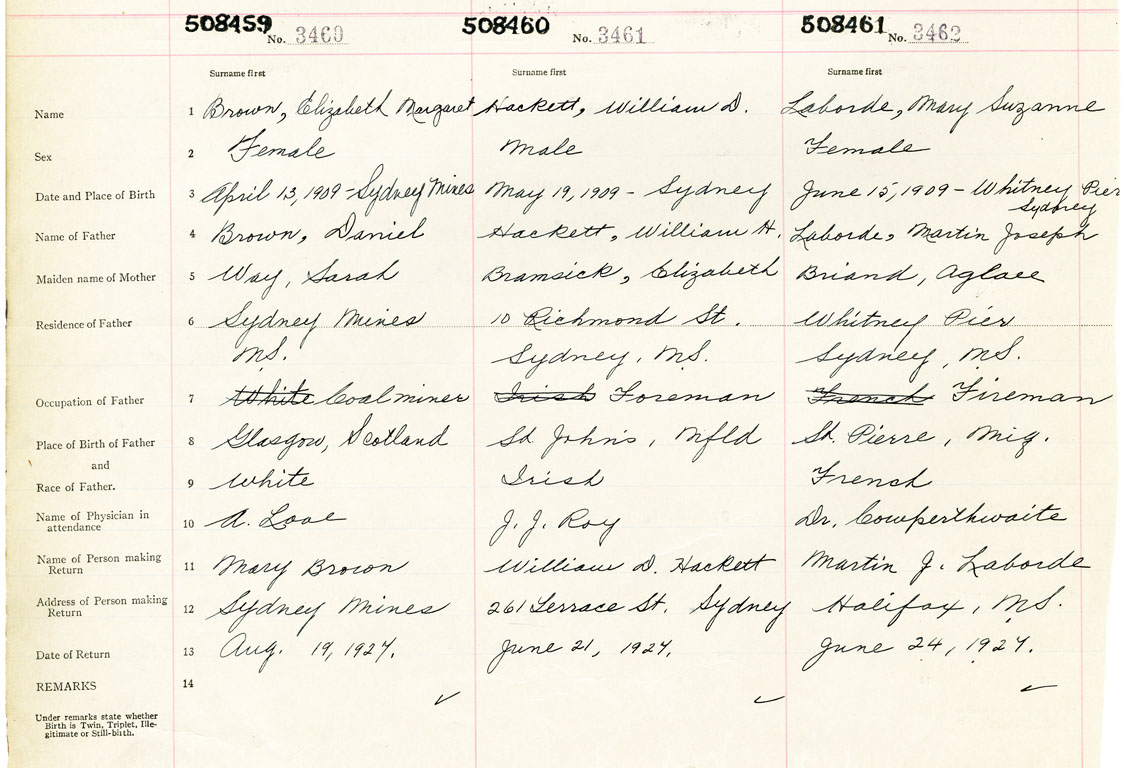 508459 No. 3460 508460 No. 3461 508461 No. 3462
Surname first Surname first Surname first
Name 1 Brown, Elizabeth Margaret Hackett, William D. Laborde, Mary Suzanne
Sex 2 Female Male Female
Date and Place of Birth 3 April 13, 1909 - Sydney Mines May 19, 1909 - Sydney June 15, 1909 - Whitney Pier
Sydney
Name of Father 4 Brown, Daniel Hackett, William H. Laborde, Martin Joseph
Maiden name of Mother 5 Way, Sarah Bramsick, Elizabeth Briand, Aglaee
Residence of Father 6 Sydney Mines 10 Richmond St. Whitney Pier
N.S. Sydney, N.S. Sydney, N.S.
Occupation of Father 7 White Coalminer Irish Foreman French Fireman
Place of Birth of Father 8 Glasgow, Scotland St. John's, Nfld St. Pierre, Miq.
and
Race of Father. 9 White Irish French
Name of Physician in
attendance 10 A. J. J. Roy Dr. Cowperthwaite
Name of Person making
Return 11 Mary Brown William D. Hackett Martin J. Laborde
Address of Person making
Return 12 Sydney Mines 261 Terrace St. Sydney Halifax, N.S.
Date of Return 13 Aug. 19, 1927. June 21, 1927. June 24, 1927.
REMARKS 14
Under remarks state whether
Birth is Twin, Triplet, Ille-
gitimate or Still-birth.